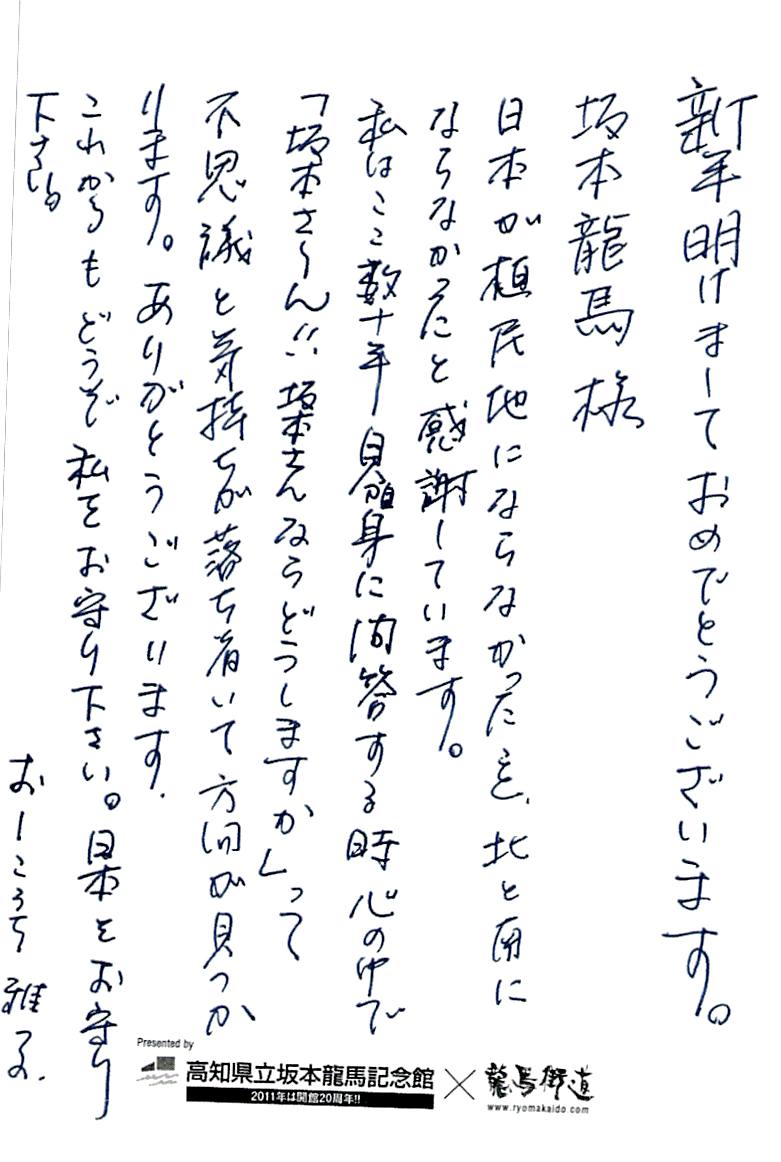 新年明けましておめでとうございます。
坂本龍馬様
日本が植民地にならなかった事、北と南に
ならなかったと感謝しています。
私はここ数十年自分自身に問答する時心の中で
「坂本さ〜ん!!坂本さんならどうしますか」って
不思議と気持ちが落ち着いて方向が見つか
ります。ありがとうございます.
これからもどうぞ私をお守り下さい。日本をお守り
下さい。
おーこうち 雅子.
Presented by
高知県立坂本龍馬記念館 × 龍馬街道
2011年は開館20周年!!
www.ryomakaido.com